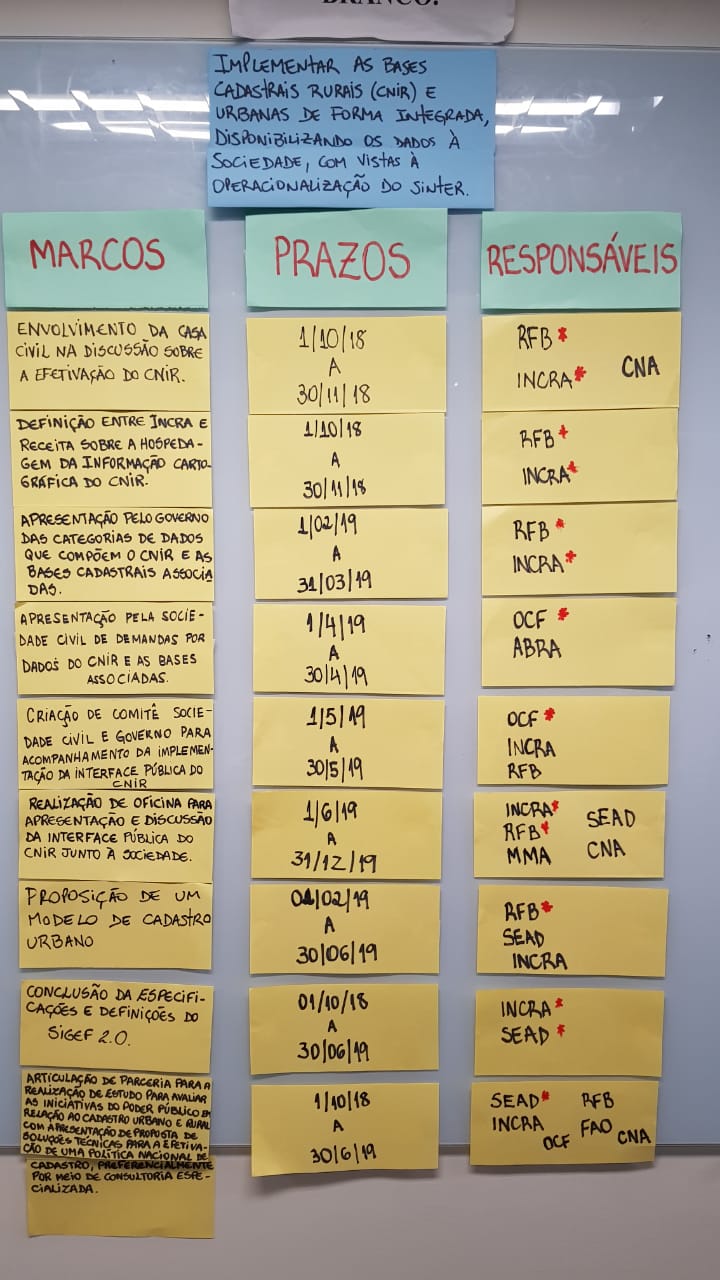 BRANCO.
IMPLEMENTAR AS BASES
CADASTRAIS RURAIS (CNIR) E
URBANAS DE FORMA INTEGRADA,
DISPONIBILIZANDO OS DADOS À
SOCIEDADE, COM VISTAS À
OPERACIONALIZAÇÃO DO SINTER.
MARCOS
PRAZOS
RESPONSÁVEIS
ENVOLVIMENTO DA CASA
CIVIL NA DISCUSSÃO SOBRE
A EFETIVAÇÃO DO CNIR.
1/10/18
A
30/11/18
RFB *
INCRA * CNA
DEFINIÇÃO ENTRE INCRA E
RECEITA SOBRE A HOSPEDA-
GEM DA INFORMAÇÃO CARTO-
GRÁFICA DO CNIR.
1/10/18
A
30/11/18
RFB *
INCRA *
APRESENTAÇÃO PELO GOVERNO
DAS CATEGORIAS DE DADOS
QUE COMPÕEM O CNIR E AS
BASES CADASTRAIS ASSOCIA
DAS.
1/02/19
A
31/03/19
RFB *
INCRA *
APRESENTAÇÃO PELA SOCIE-
DADE CIVIL DE DEMANDAS POR
DADOS DO CNIR E AS BASES
ASSOCIADAS.
1/4/19
A
30/4/19
OCF *
ABRA
CRIAÇÃO DE COMITÊ SOCIE-
DADE CIVIL E GOVERNO PARA
ACOMPANHAMENTO DA IMPLEMEN-
TAÇÃO DA INTERFACE PÚBLICA DO
CNIR
1/5/19
A
30/5/19
OCF *
INCRA
RFB
REALIZAÇÃO DE OFICINA PARA
APRESENTAÇÃO E DISCUSSÃO
DA INTERFACE PÚBLICA DO
CNIR JUNTO À SOCIEDADE.
1/6/19
A
31/12/19
INCRA * SEAD
RFB *
MMA CNA
PROPOSIÇÃO DE UM
MODELO DE CADASTRO
URBANO
01/02/19
A
30/06/19
RFB *
SEAD
INCRA
CONCLUSÃO DA ESPECIFI-
CAÇÕES E DEFINIÇÕES DO
SIGEF 2.0.
01/10/18
A
30/06/19
INCRA *
SEAD *
ARTICULAÇÃO DE PARCERIA PARA A
REALIZAÇÃO DE ESTUDO PARA AVALIAR
AS INICIATIVAS DO PODER PÚBLICO EM
RELAÇÃO AO CADASTRO URBANO E RURAL
COM APRESENTAÇÃO DE PROPOSTA DE
SOLUÇÕES TÉCNICAS PARA A EFETIVA-
ÇÃO DE UMA POLÍTICA NACIONAL DE
CADASTRO, PREFERENCIALMENTE
POR MEIO DE CONSULTORIA ESPE-
CIALIZADA.
1/10/18
A
30/6/19
SEAD * RFB
INCRA FAO
OCF CNA